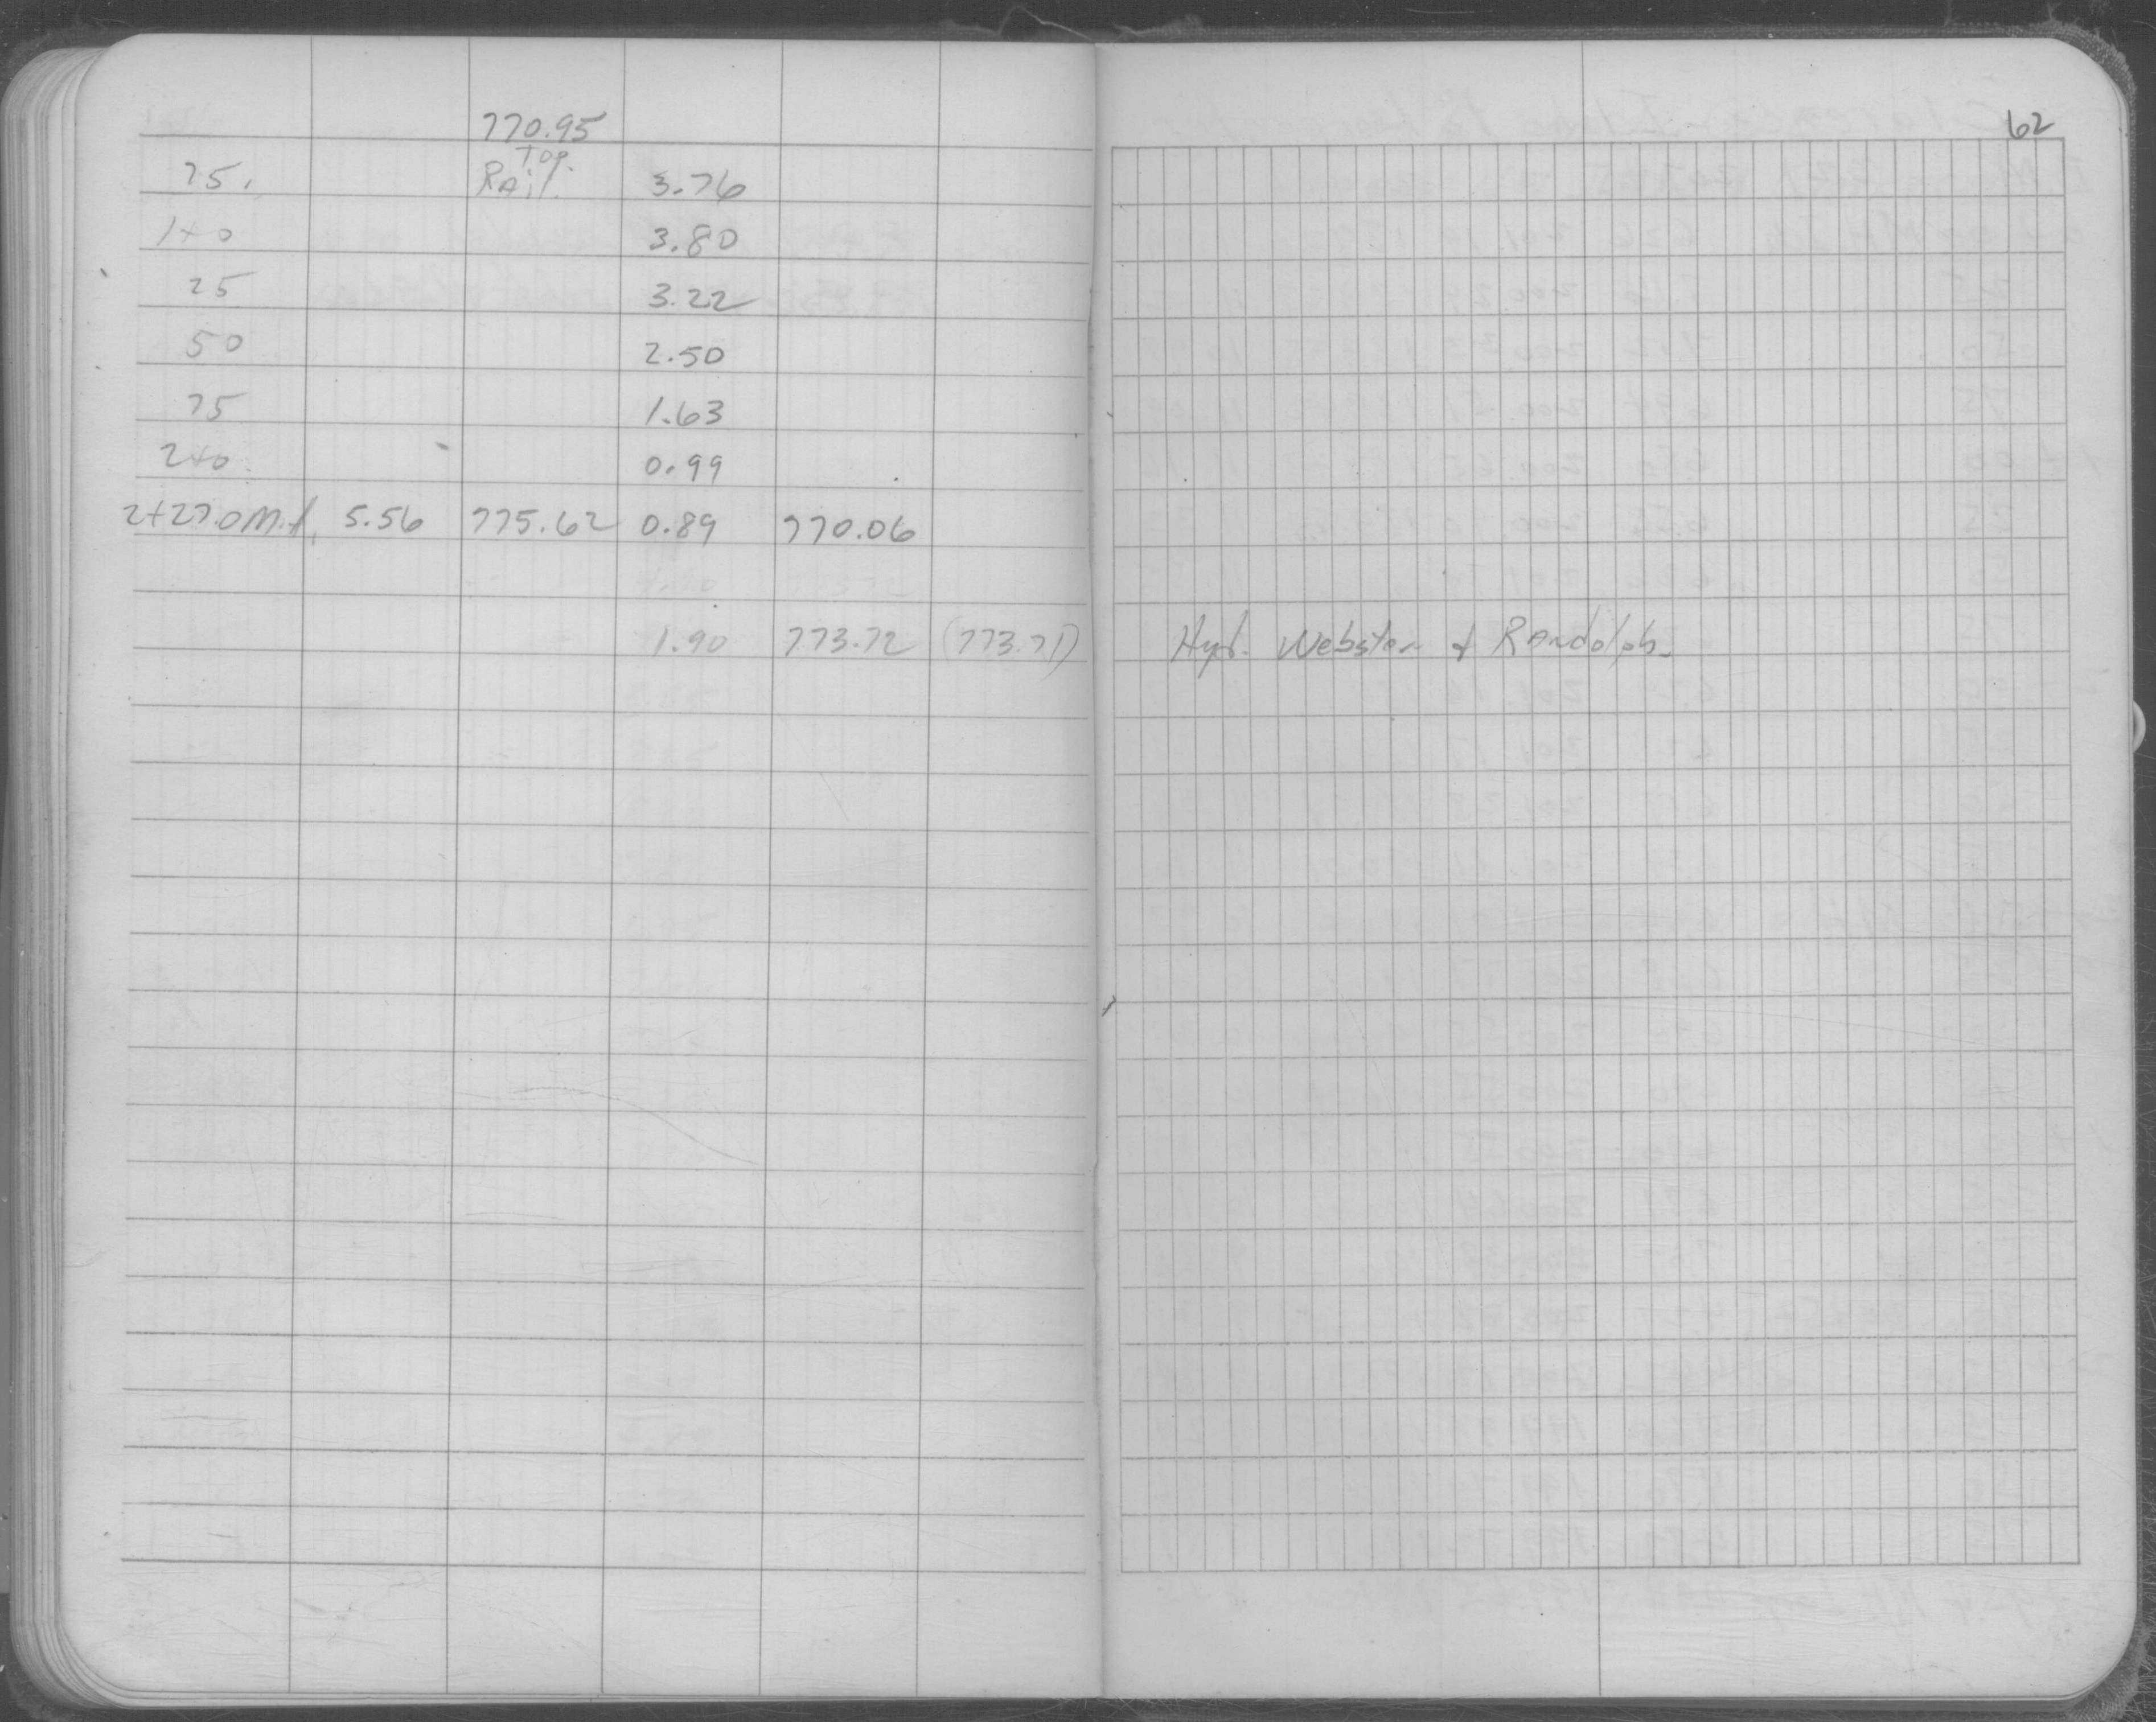 770.95
62
Top.
75. Rail. 3.76
1+0 3.80
25 3.22
50 2.50
75 1.63
2+0 0.99
2+27.0 5.56 775.62 0.89 770.06
1.90 773.72 (773.71) Hyd. Webster & Randolph.